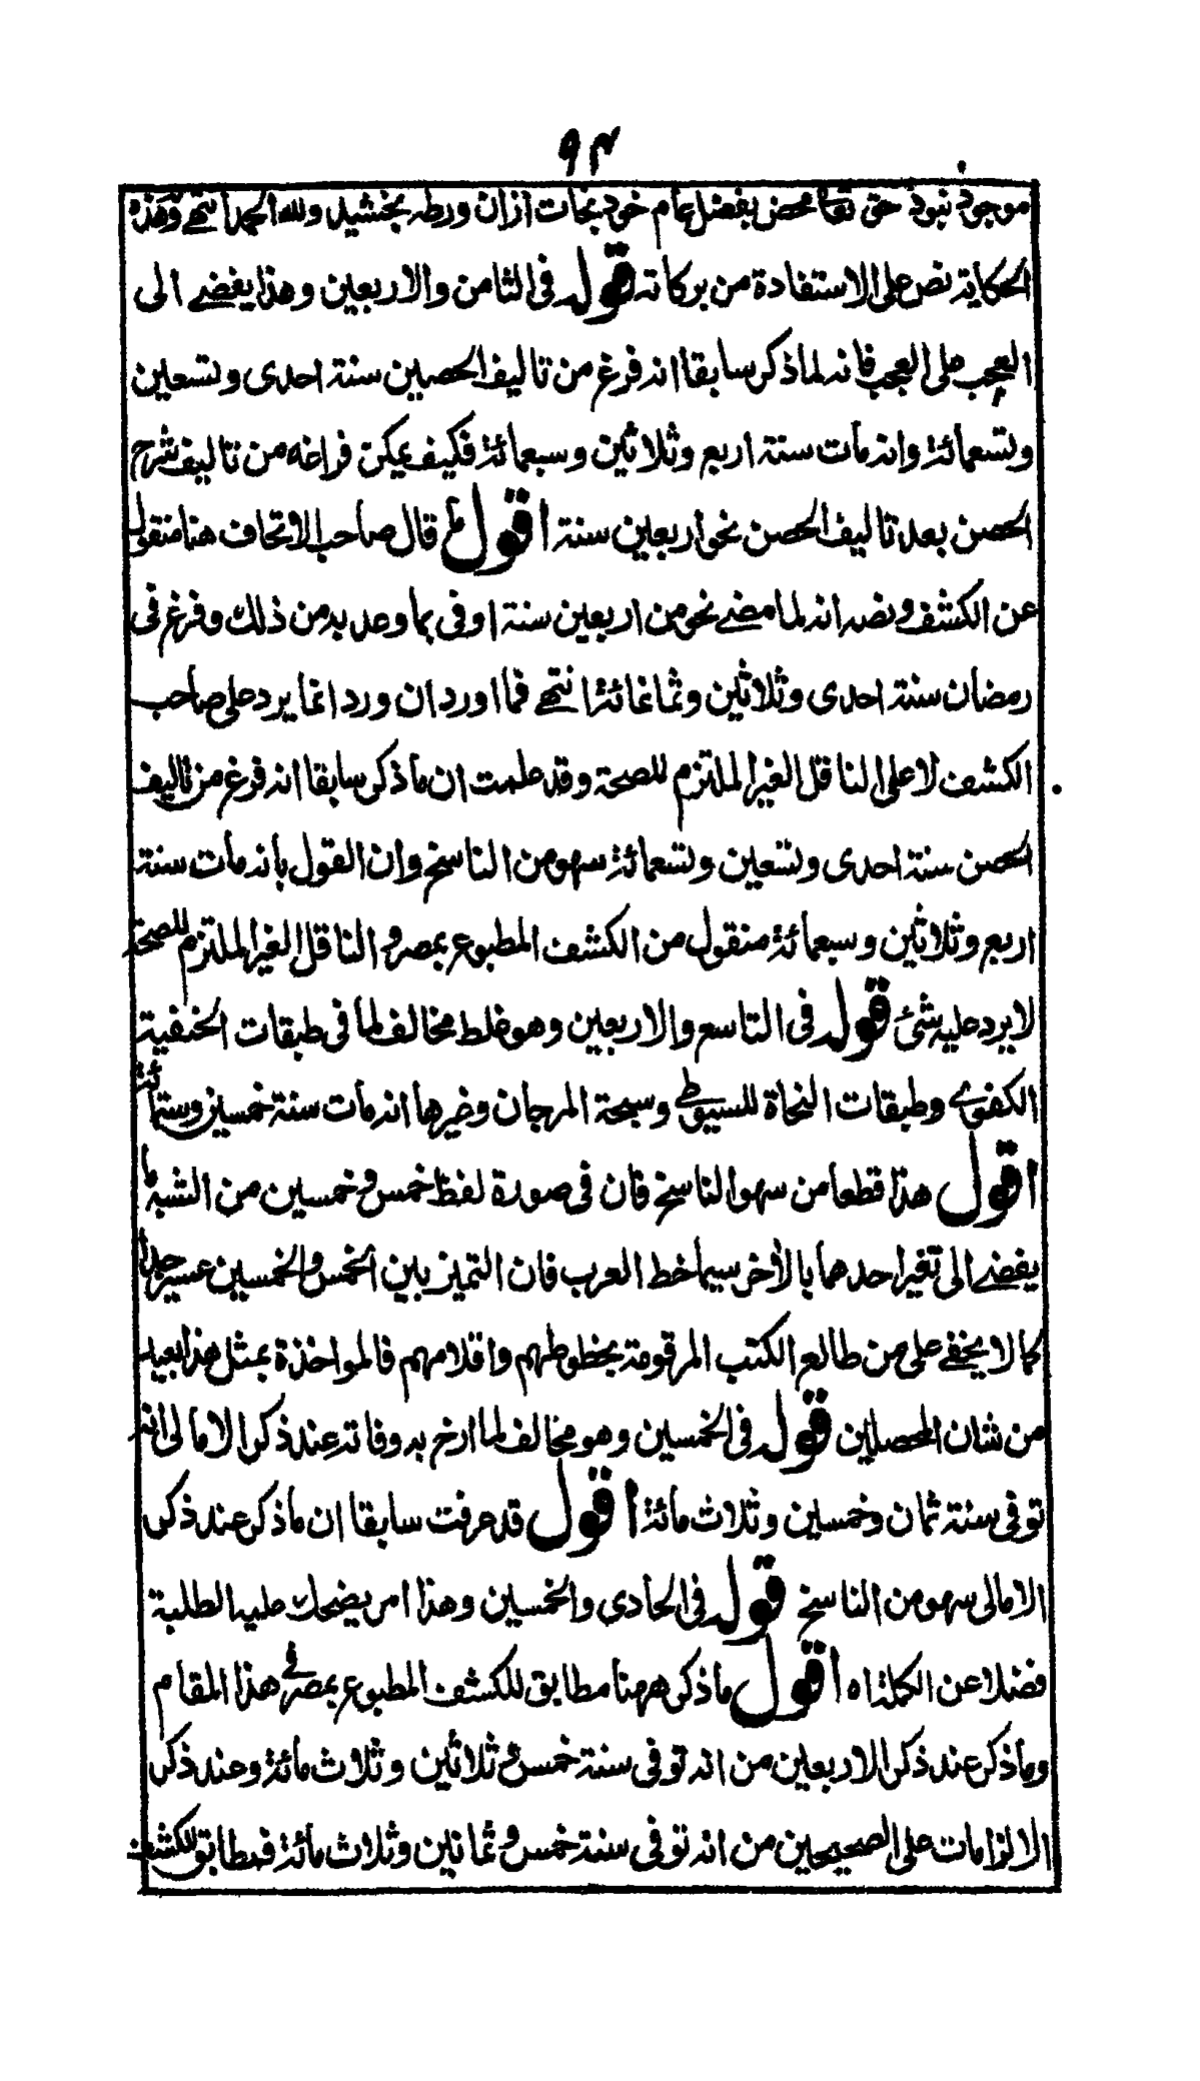 ٩٣
موجود نبود حق تعالى محض بفضل عام خود نجات ازان ورطه بخشيد ولله الحمد انتهى وهذه
الحكاية نص على الاستفادة من بركاته قوله فى الثامن والاربعين وهذا يفضے الى
العجب على العجب فانه لما ذكر سابقا انه فرغ من تاليف الحصين سنة احدى وتسعين
وتسعمائة وانه مات سنة اربع وثلاثين وسبعمائة فكيف يمكن فراغه من تاليف شرح
الحصن بعد تاليف الحصن نحو اربعين سنة اقول قال صاحب الاتحاف هنا منقولا
عن الكشف ونصه انه لما مضے نحو من اربعين سنة اوفى بما وعد به من ذلك وفرغ فى
رمضان سنة احدى وثلاثين وثمانمائة انتهے فما اورد ان ورد انما يرد على صاحب
الكشف لا على الناقل الغير الملتزم للصحة وقد علمت ان ما ذكر سابقا انه فرغ من تاليف
الحصن سنة احدى وتسعين وتسعمائة سهو من الناسخ وان القول بانه مات سنة
اربع وثلاثين وسبعمائة منقول من الكشف المطبوع بمصر والناقل الغير الملتزم للصحة
لا يرد عليه شئ قوله فى التاسع والاربعين وهو غلط مخالف لما فى طبقات الحنفية
الكفوے وطبقات النحاة للسيوطے وسبحة المرجان وغيرها انه مات سنة خمسين وستمائة
اقول هذا قطعا من سهو الناسخ فان فى صورة لفظ خمس و خمسين من الشبه ما
يفضے الى تغير احدهما بالاخر سيما خط العرب فان التميز بين الخمس والخمسين عسير جدا
كما لا يخفے على من طالع الكتب المرقومة بخطوطهم واقلامهم فالمواخذة بمثل هذا بعيد
من شان المحصلين قوله فى الخمسين وهو مخالف لما ارخ به وفاته عند ذكر الامالى انه
توفى سنة ثمان وخمسين وثلاث مائة اقول قد عرفت سابقا ان ما ذكر عند ذكر
الامالى سهو من الناسخ قوله فى الحادى والخمسين وهذا امر يضحك عليه الطلبة
فضلا عن الكملة اه اقول ما ذكر ههنا مطابق للكشف المطبوع بمصر فى هذا المقام
وما ذكر عند ذكر الاربعين من انه توفى سنة خمس وثلاثين وثلاث مائة وعند ذكر
الالزامات على الصحيحين من انه توفى سنة خمس وثمانين وثلاث مائة فمطابق للكشف